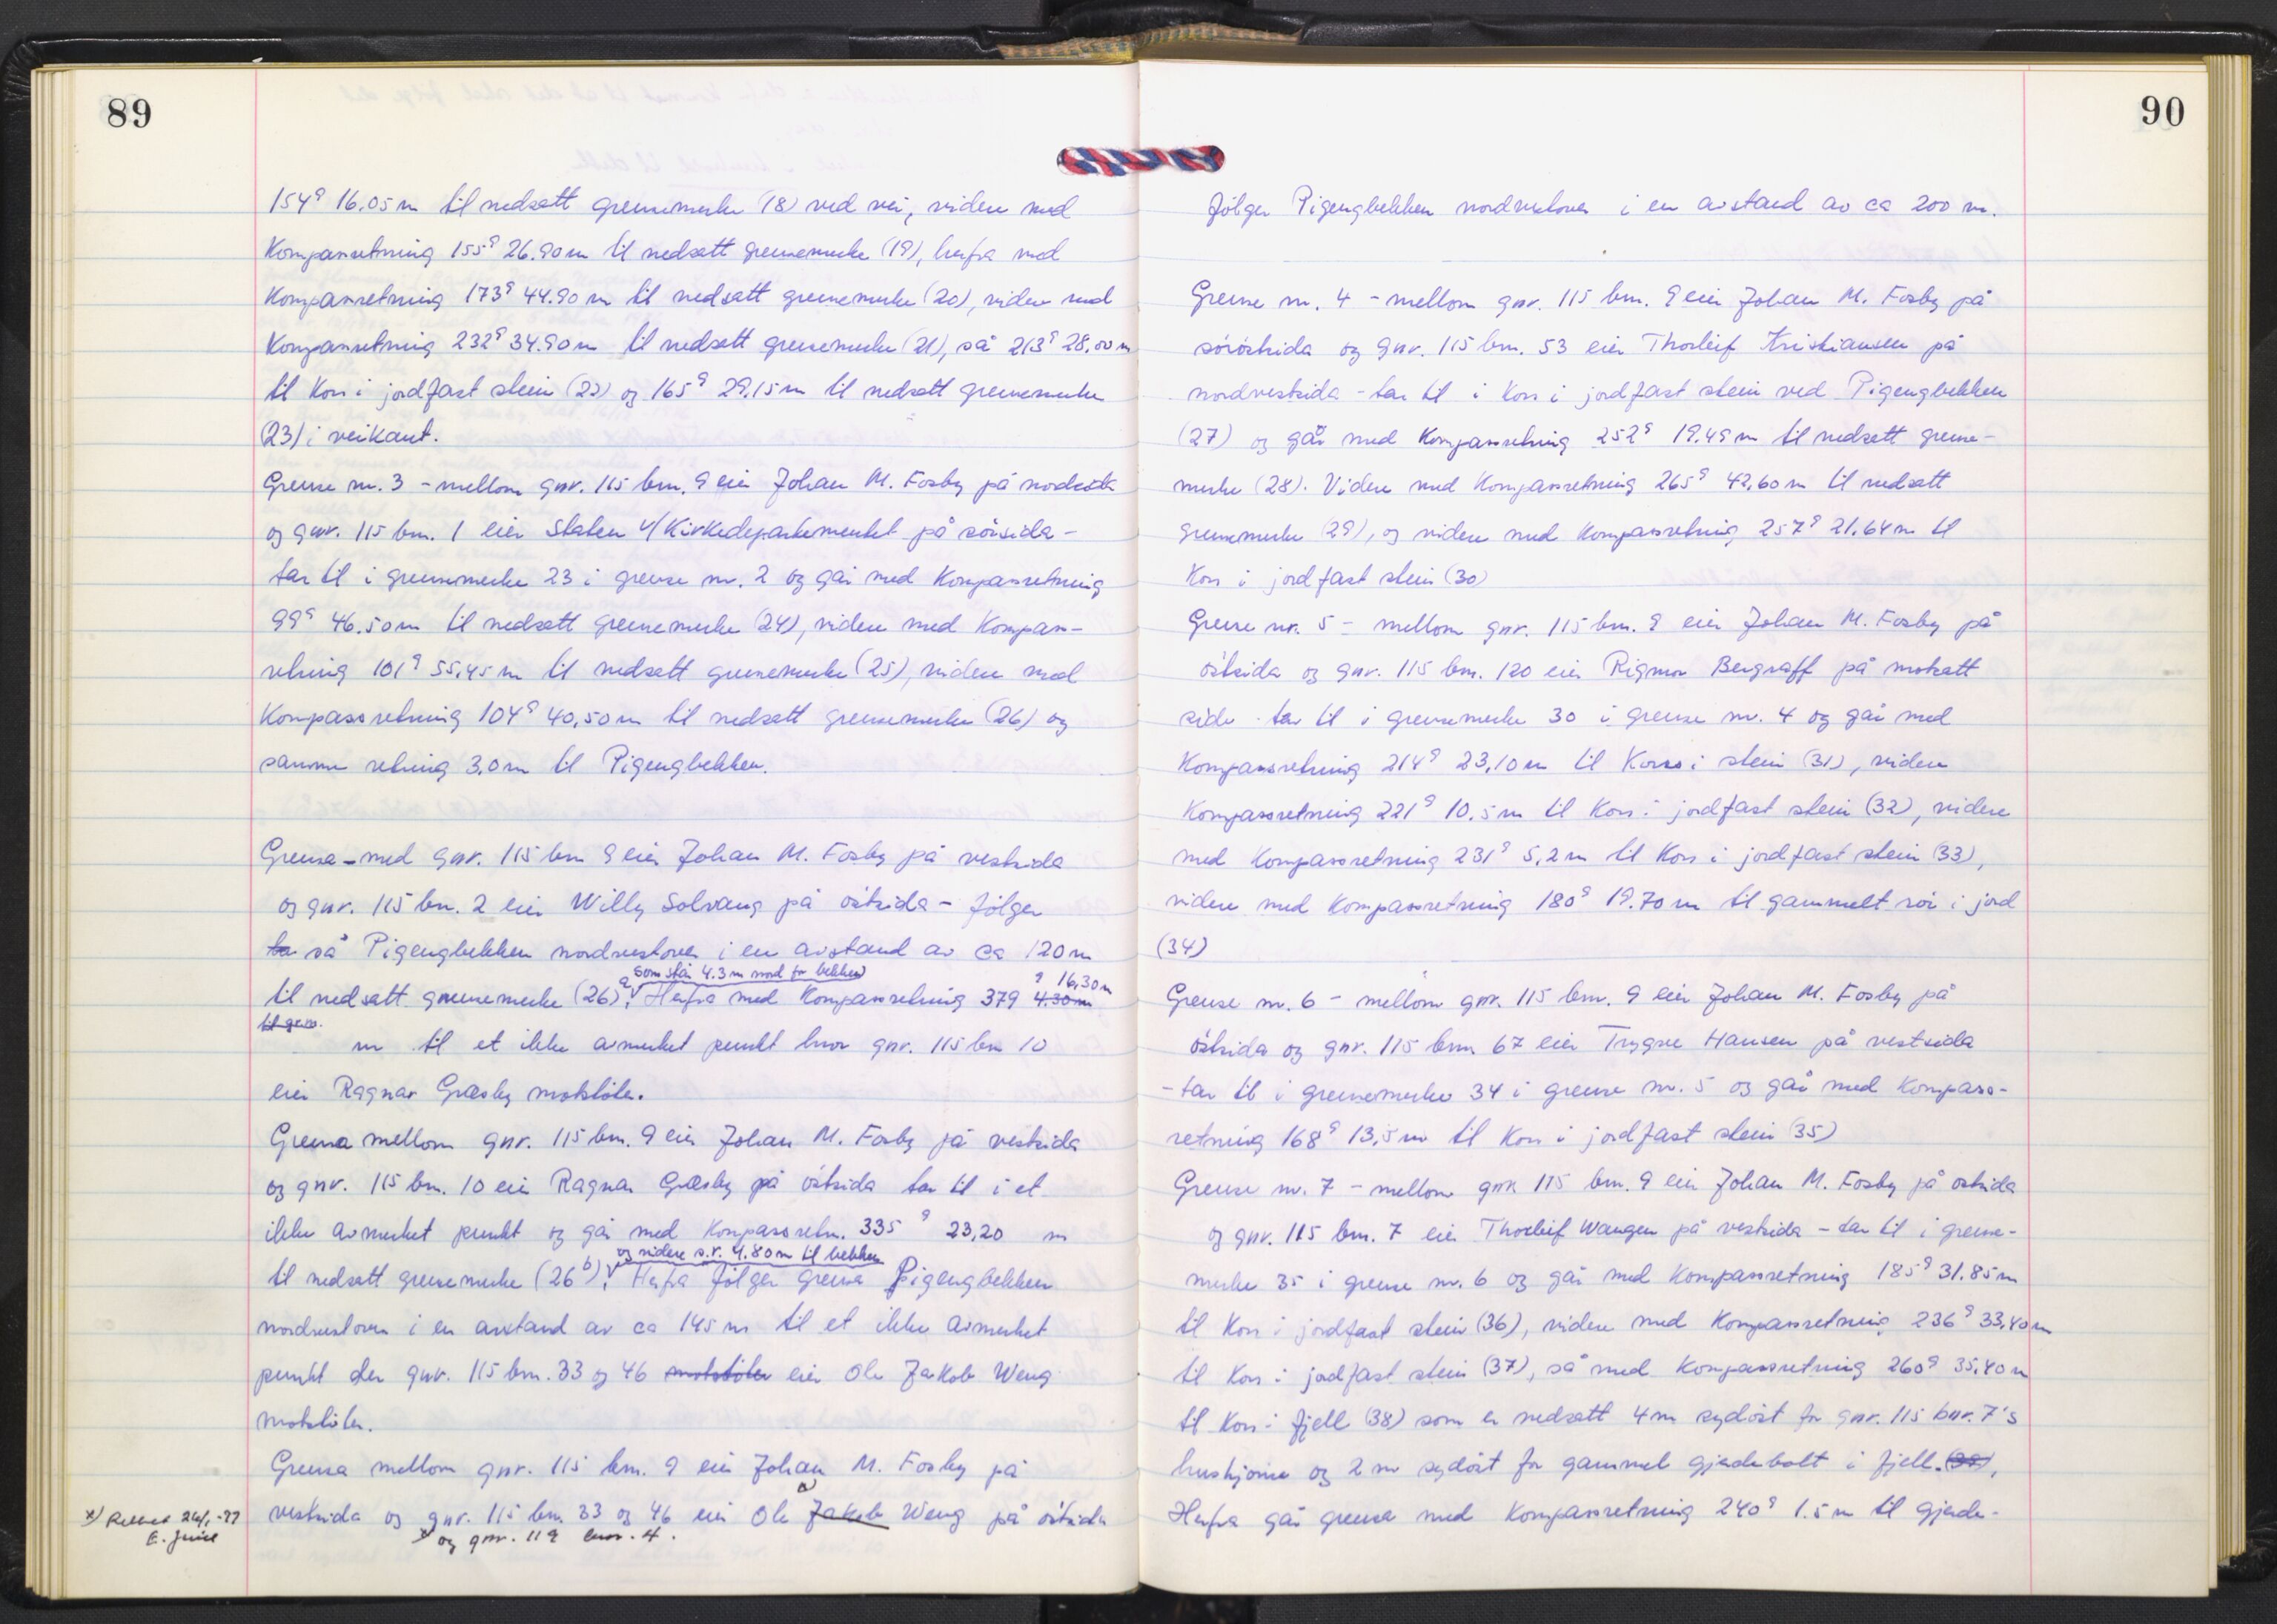 89
154g 16.05 m til nedsatt grensemerke (18) ved vei, videre med
Kompassretning 155g 26.90 m til nedsatt grensemerke (19), herfra med
Kompassretning 173g 44.90 m til nedsatt grensemerke (20), videre med
Kompassretning 232g 34.90 m til nedsatt grensemerke (21), så 213g 28,00 m
til Kors i jordfast stein (22) og 165g 29,15 m til nedsatt grensemerke
(23) i veikant.
Grense nr. 3 - mellom gnr. 115 bnr. 9 eier Johan M. Fosby på nordsida
og gnr. 115 bnr. 1 eier Staten v/Kirkedepartementet på sörsida -
tar til i grensemerke 23 i grense nr. 2 og går med Kompassretning
99g 46.50 m til nedsatt grensemerke (24), videre med Kompass-
retning 101g 55,45 m til nedsatt grensemerke (25), videre med
Kompassretning 104g 40,50 m til nedsatt grensemerke (26) og
samme retning 3,0 m til Pigengbekken.
Grensa - med gnr. 115 bnr 9 eier Johan M. Fosby på vestsida
og gnr. 115 bnr. 2 eier Willy Solvang på östsida - fölger
ta så Pigengbekken nordvestover i en avstand av ca 120 m
som står 4.3 m nord for bekken
til nedsatt grensemerke (26)a. Herfra med Kompassretning 379 g 16,30 m 4.30 m
til grm.
m til et ikke avmerket punkt hvor gnr. 115 bnr 10
eier Ragnar Græsby motstöter.
Grensa mellom gnr. 115 bnr. 9 eier Johan M. Fosby på vestsida
og gnr. 115 bnr. 10 eier Ragnar Græsby på östsida tar til i et
ikke avmerket punkt og går med Kompassretn. 335 g 23,20 m
og videre s.r. 4.80 m til bekken
til nedsatt grensemerke (26b). Herfra fölger grensa Pigengbekken
nordvestover i en avstand av ca 145 m til et ikke avmerket
punkt der gnr. 115 bnr. 33 og 46 motstöter eier Ole Jakob Weng
motstöter.
Grensa mellom gnr. 115 bnr. 9 eier Johan M. Fosby på
vestsida og gnr. 115 bnr. 33 og 46 eier Ole Jakob Weng på östsida
x og gnr. 119 bnr. 4.
x) Rettet 24/1-77
E. Juul
90
fölger Pigengbekken nordvestover i en avstand av ca 200 m.
Grense nr. 4 - mellom gnr. 115 bnr. 9 eier Johan M. Fosby på
söröstsida og gnr. 115 bnr. 53 eier Thorleif Kristiansen på
nordvestsida - tar til i Kors i jordfast stein ved Pigengbekken
(27) og går med Kompassretning 252g 19.49 m til nedsatt grense-
merke (28). Videre med Kompassretning 265g 42,60 m til nedsatt
grensemerke (29), og videre med Kompassretning 257g 21.64 m til
Kors i jordfast stein (30)
Grense nr. 5 - mellom gnr. 115 bnr. 9 eier Johan M. Fosby på
östsida og gnr. 115 bnr. 120 eier Rigmor Bergraff på motsatt
side - tar til i grensemerke 30 i grense nr. 4 og går med
Kompassretning 214g 23,10 m til Kors i stein (31), videre
Kompassretning 221g 10.5 m til Kors i jordfast stein (32), videre
med Kompassretning 231g 5,2 m til Kors i jordfast stein (33),
videre med Kompassretning 180g 19.70 m til gammelt rör i jord
(34)
Grense nr. 6 - mellom gnr. 115 bnr. 9 eier Johan M. Fosby på
östsida og gnr. 115 bnr. 67 eier Trygve Hansen på vestsida
- tar til i grensemerke 34 i grense nr. 5 og går med Kompass-
retning 168g 13,5 m til Kors i jordfast stein (35)
Grense nr. 7 - mellom gnr 115 bnr. 9 eier Johan M. Fosby på östsida
og gnr. 115 bnr. 7 eier Thorleif Wangen på vestsida - tar til i grense-
merke 35 i grense nr. 6 og går med Kompassretning 185g 31.85 m
til Kors i jordfast stein (36), videre med Kompassretning 236g 33,40 m
til Kors i jordfast stein (37), så med Kompassretning 260g 35,40 m
til Kors i fjell (38) som er nedsatt 4 m sydöst for gnr. 115 bnr. 7's
hushjörne og 2 m sydöst for gammel gjerdebolt i fjell.
Herfra går grensa med Kompassretning 240g 1.5 m til gjerde-